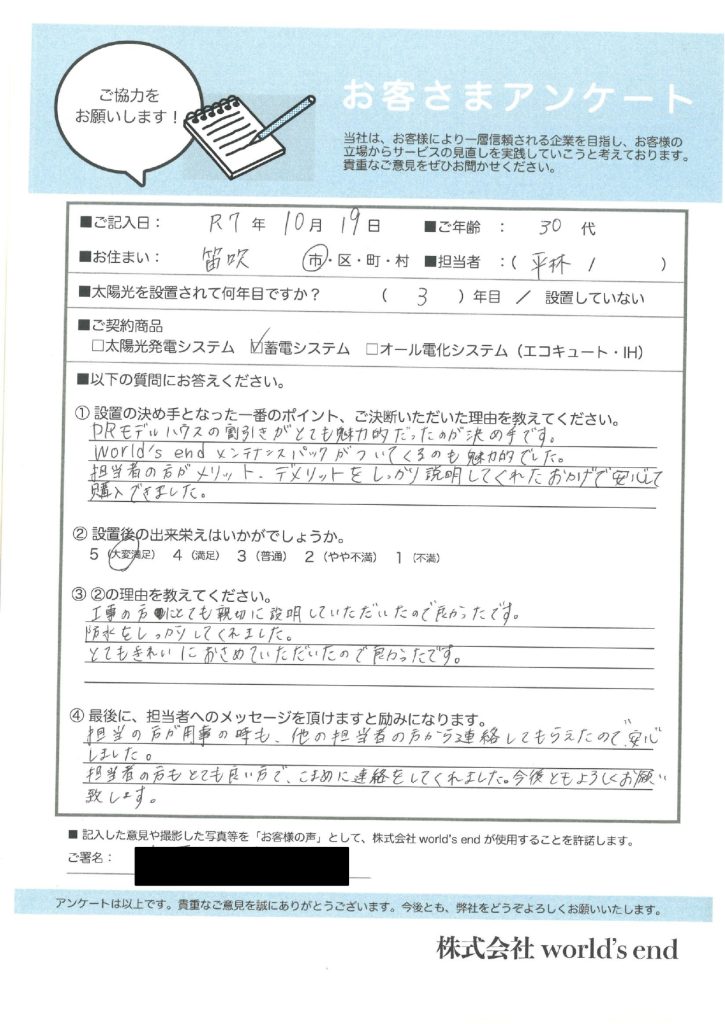 ご協力を
お願いします！
お客さまアンケート
当社は、お客様により一層信頼される企業を目指し、お客様の
立場からサービスの見直しを実践していこうと考えております。
貴重なご意見をぜひお聞かせください。
■ご記入日： R7 年 10月 19日 ■ご年齢 ： 30 代
■お住まい： 笛吹 市・区・町・村 ■担当者 ：（ 平林 / ）
■太陽光を設置されて何年目ですか？ （ 3 ）年目 / 設置していない
■ご契約商品
□太陽光発電システム ☑蓄電システム □オール電化システム（エコキュート・IH）
■以下の質問にお答えください。
① 設置の決め手となった一番のポイント、ご決断いただいた理由を教えてください。
PRモデルハウスの割引きがとても魅力的だったのが決め手です。
world's end メンテナンスパックがついてくるのも魅力的でした。
担当者の方がメリット、デメリットをしっかり説明してくれたおかげで安心して
購入できました。
② 設置後の出来栄えはいかがでしょうか。
5（大変満足） 4（満足） 3（普通） 2（やや不満） 1（不満）
③ ②の理由を教えてください。
工事の方にとても親切に説明していただいたので良かったです。
防水をしっかりしてくれました。
とてもきれいにおさめていただいたので良かったです。
④ 最後に、担当者へのメッセージを頂けますと励みになります。
担当の方が用事の時も、他の担当者の方から連絡してもらえたので、安心
しました。
担当者の方もとても良い方で、こまめに連絡をしてくれました。今後ともよろしくお願い
致します。
■ 記入した意見や撮影した写真等を「お客様の声」として、株式会社 world's end が使用することを許諾します。
ご署名：
アンケートは以上です。貴重なご意見を誠にありがとうございます。今後とも、弊社をどうぞよろしくお願いいたします。
株式会社 world's end